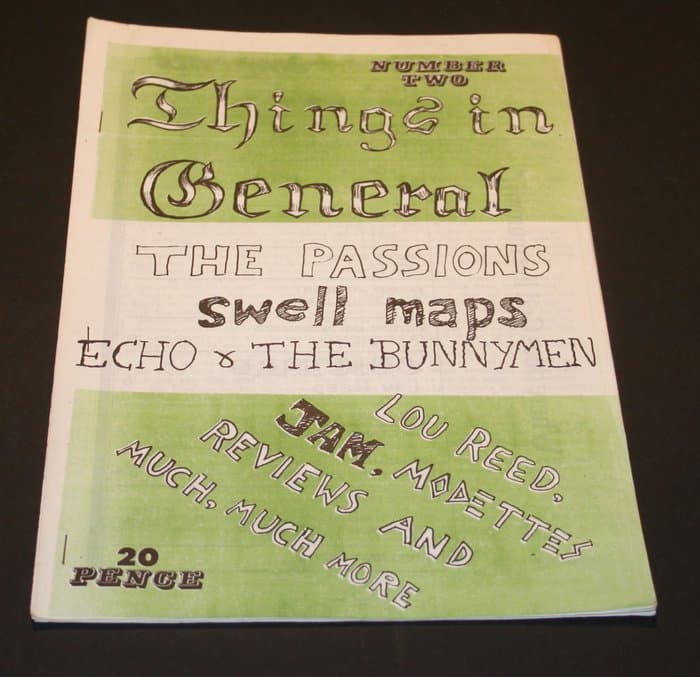 NUMBER
TWO
Things in
General
THE PASSIONS
swell maps
ECHO & THE BUNNYMEN
LOU REED,
JAM, MODETTES
REVIEWS AND
MUCH, MUCH MORE
20
PENCE